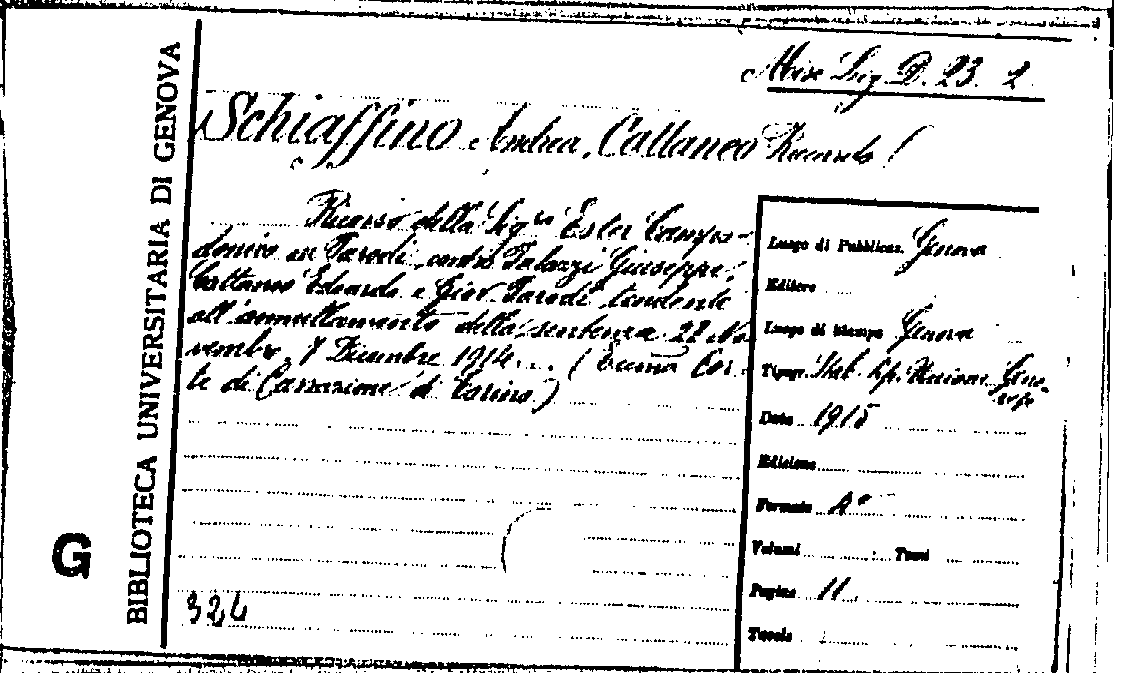 Misc Lig. D. 23. 2
Schiaffino Andrea, Cattaneo Riccardo!
Ricorso della Sig.ra Ester Campo-
donico in Parodi contro Palazzi Giuseppe,
Cattaneo Edoardo e Giov. Parodi tendente
all'annullamento della sentenza 28 No
vembre 7 Dicembre 1914... (Eccma Cor-
te di Cassazione di Torino)
324
Luogo di Pubblicaz. Genova
Editore
Luogo di stampa Genova
Tipogr. Stab. tip. Unione Geno-
Data 1915
Edizione
Formato 4°
Volumi Tomi
Pagine 11
Tavole
BIBLIOTECA UNIVERSITARIA DI GENOVA
G